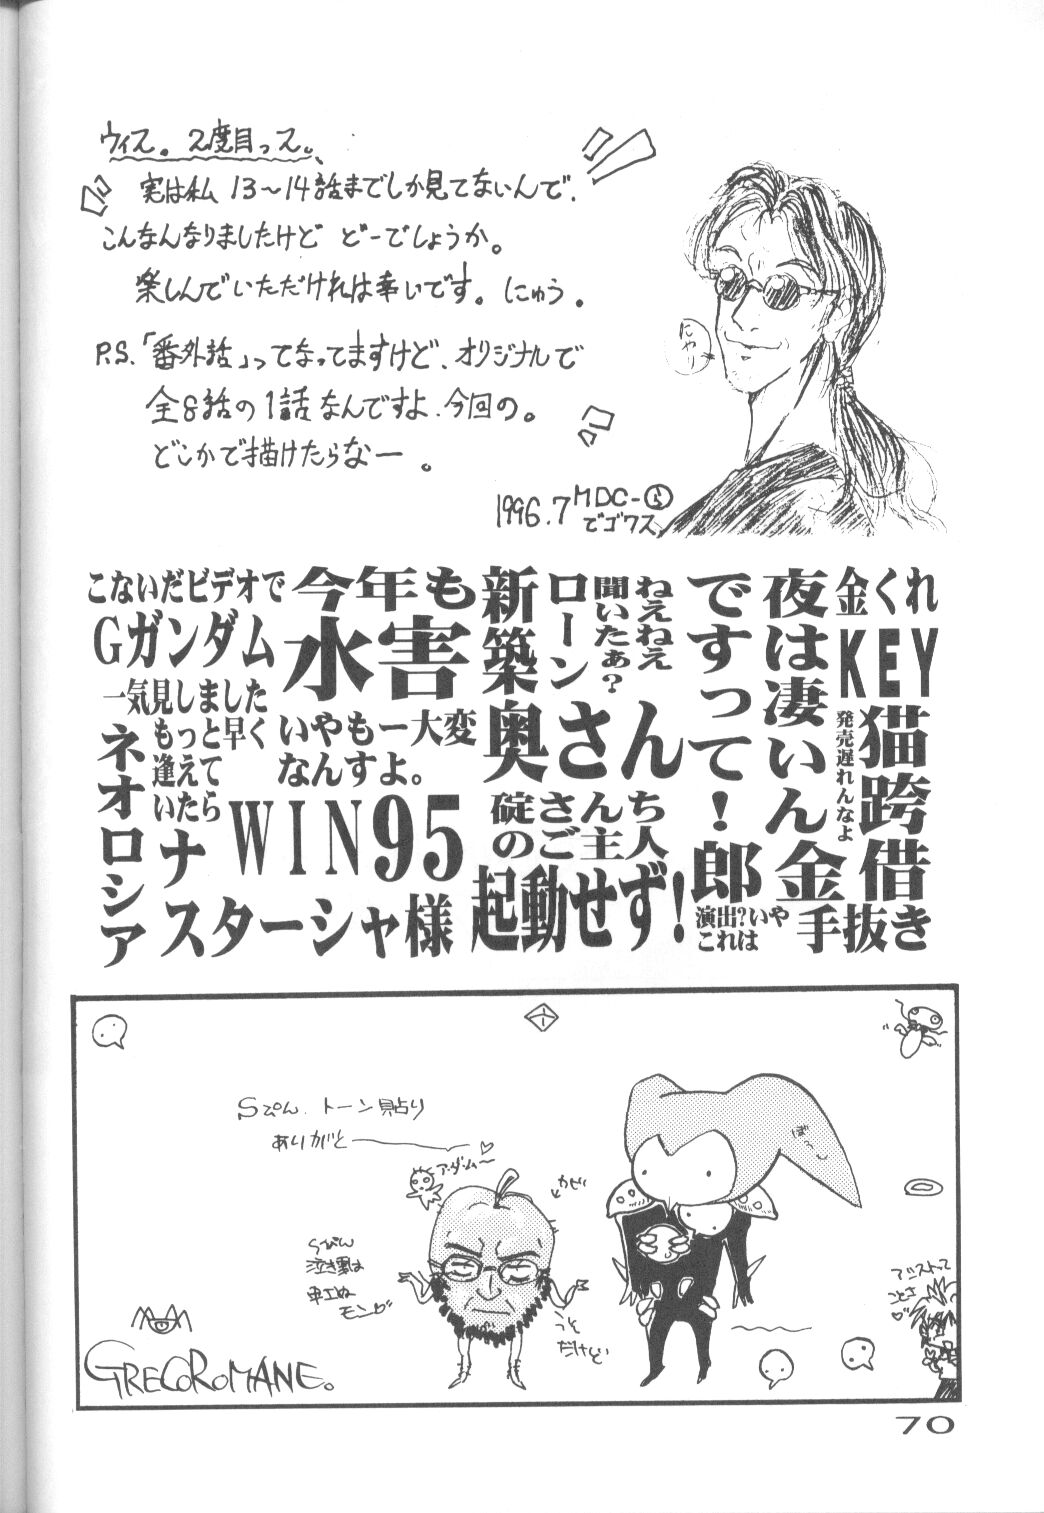 ウィス。2度目っス。
実は私 13〜14話までしか見てないんで、
こんなんなりましたけど どーでしょうか。
楽しんでいただければ幸いです。にゅう。
P.S.「番外話」ってなってますけど、オリジナルで
全8話の1話なんですよ、今回の。
どこかで描けたらなー。
1996.7 MDC-
でゴワス
にやり
こないだビデオで
Gガンダム
一気見しました
もっと早く
逢えて
いたら
ネオロシア
ナスターシャ様
今年も
水害
いやもー大変
なんすよ。
WIN95
起動せず!
新築
ローン
聞いたぁ?
ねえねえ
奥さん
碇さんち
のご主人
ですって!
夜は凄いん
郎
金くれ
KEY
発売遅れんなよ
猫跨
金借
演出?いや
これは
手抜き
Sぴん、トーン貼り
ありがと
アーダムー
かぜい
Sぴん
泣き虫は
モンが
うそ
だけど
ぼっし
アシストって
ことさ
GRECOROMANE。
70